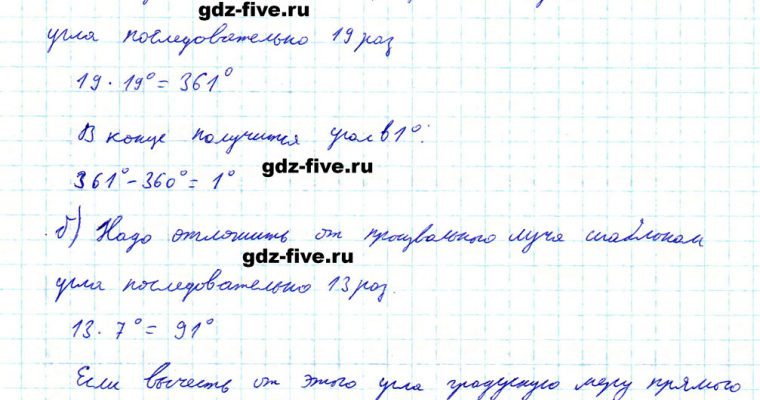 gdz-five.ru
угла последовательно 19 раз
19 · 19° = 361°
В конце получится угол в 1°:
gdz-five.ru
361° - 360° = 1°
б) Надо отложить от произвольного луча шаблоном
gdz-five.ru
угла последовательно 13 раз.
13 · 7° = 91°
gdz-five.ru
Если вычесть от этого угла градусную меру прямого